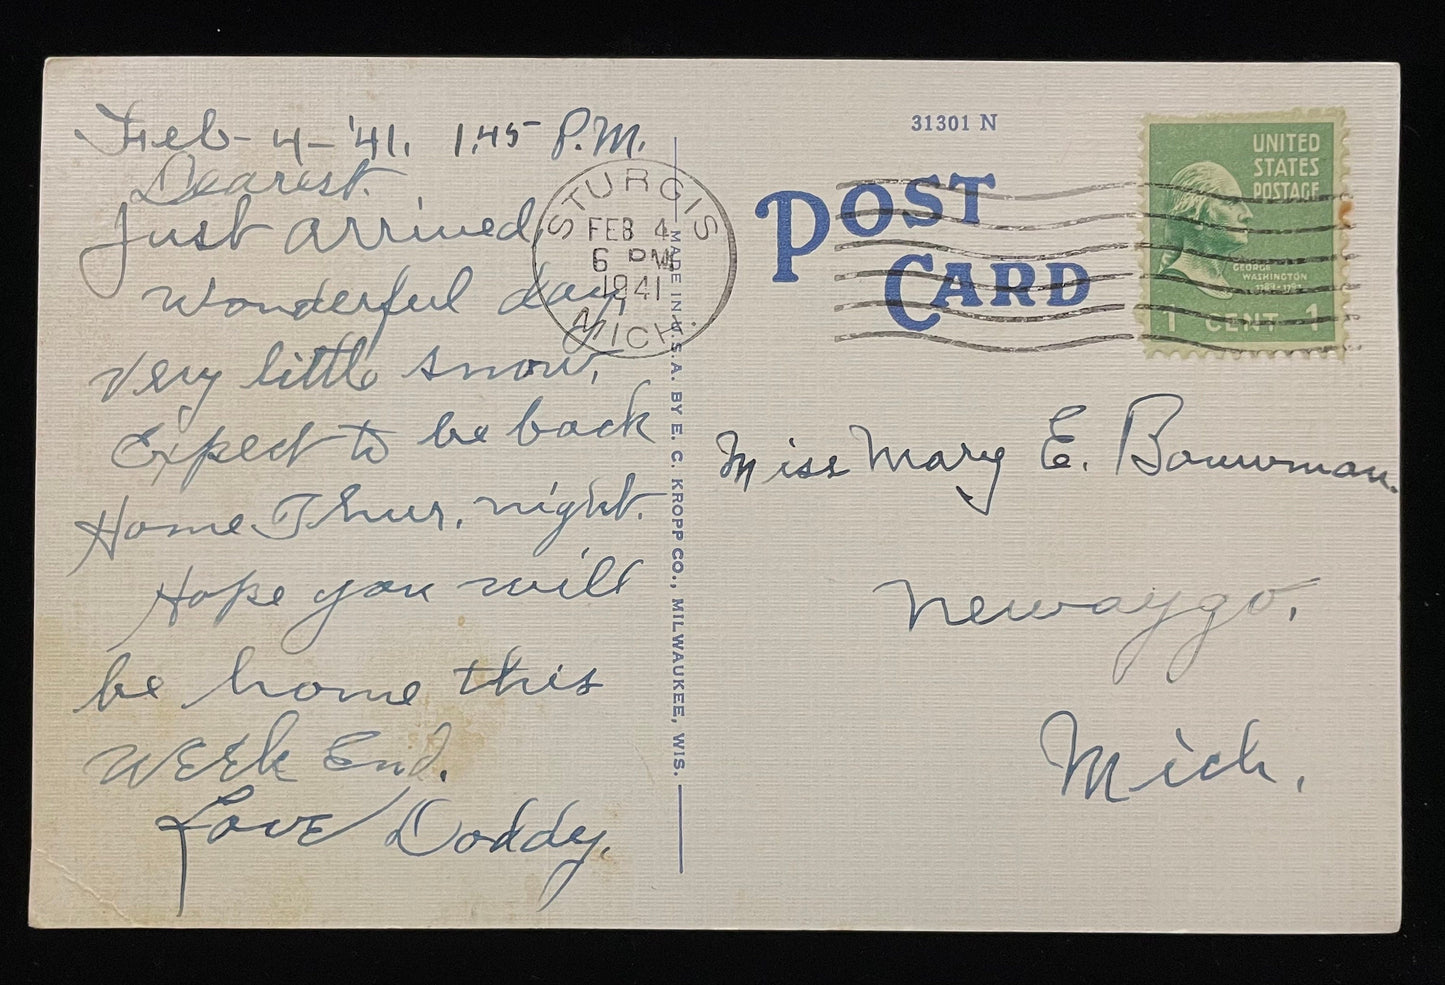 Feb - 4 - '41. 1.45 P.M.
Dearest.
Just arrived,
Wonderful day,
Very little snow,
Expect to be back
Home Thur, night.
Hope you will
be home this
WEEk End.
Love Daddy.
STURGIS
FEB 4
6 PM
1941
MICH.
MADE IN U.S.A. BY E. C. KROPP CO., MILWAUKEE, WIS.
31301 N
POST
CARD
UNITED
STATES
POSTAGE
GEORGE
WASHINGTON
1789-1797
1 CENT 1
Miss Mary E. Bouwman.
Newaygo,
Mich,